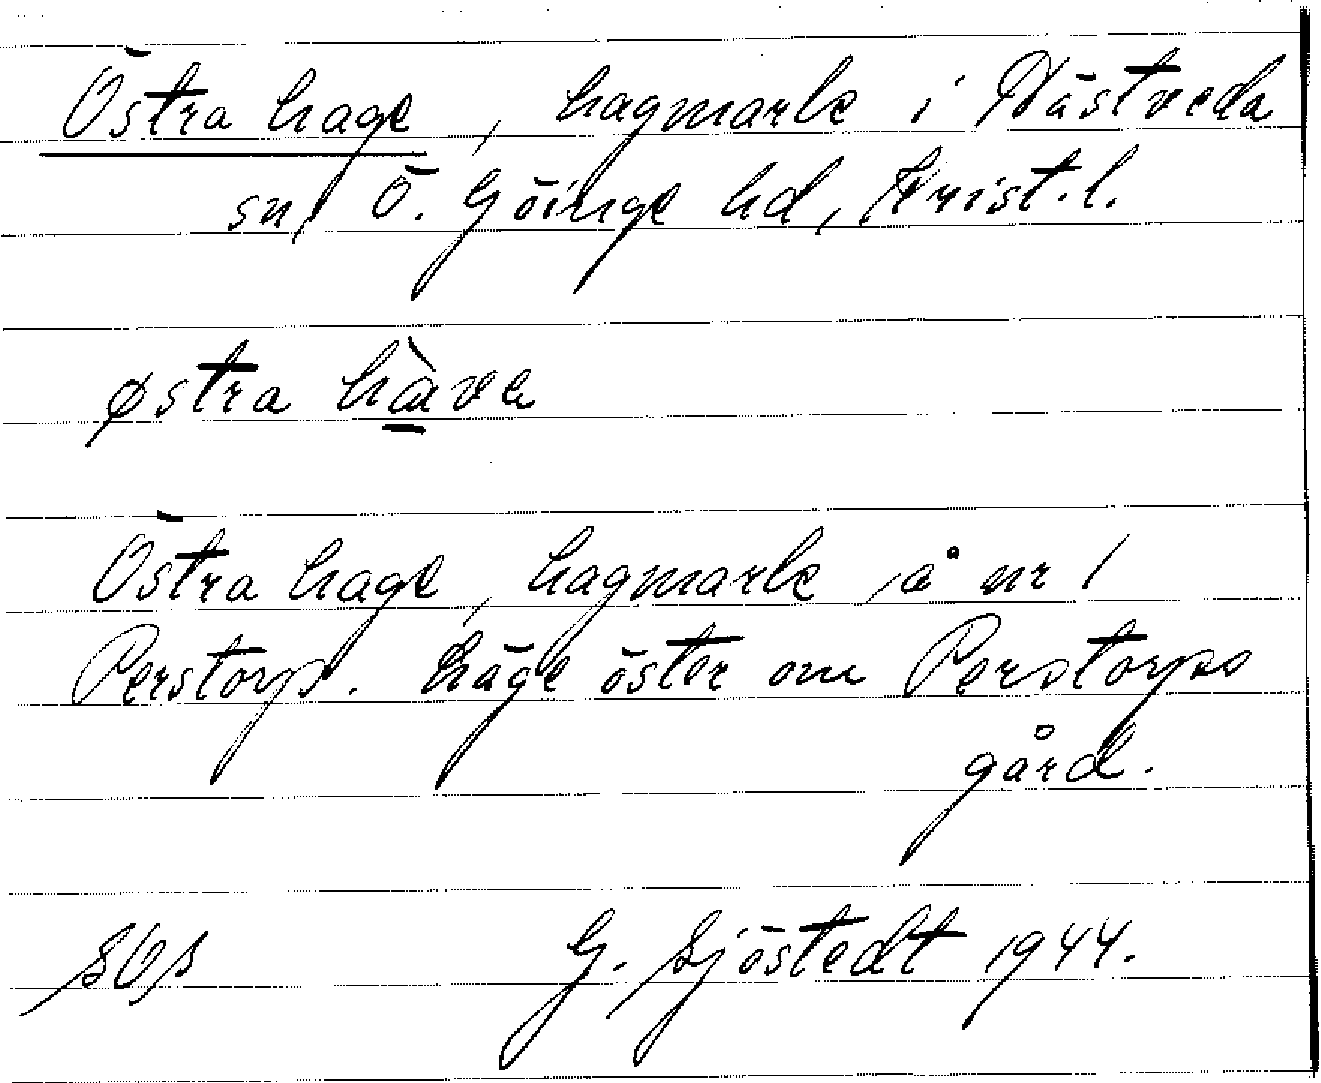 Östra hage, hagmark i Västveda
sn, Ö. Göinge hd, Krist.l.
østra hàva
Östra hage, hagmark å nr 1
Perstorp. Läge öster om Perstorps
gård.
G. Sjöstedt 1944.